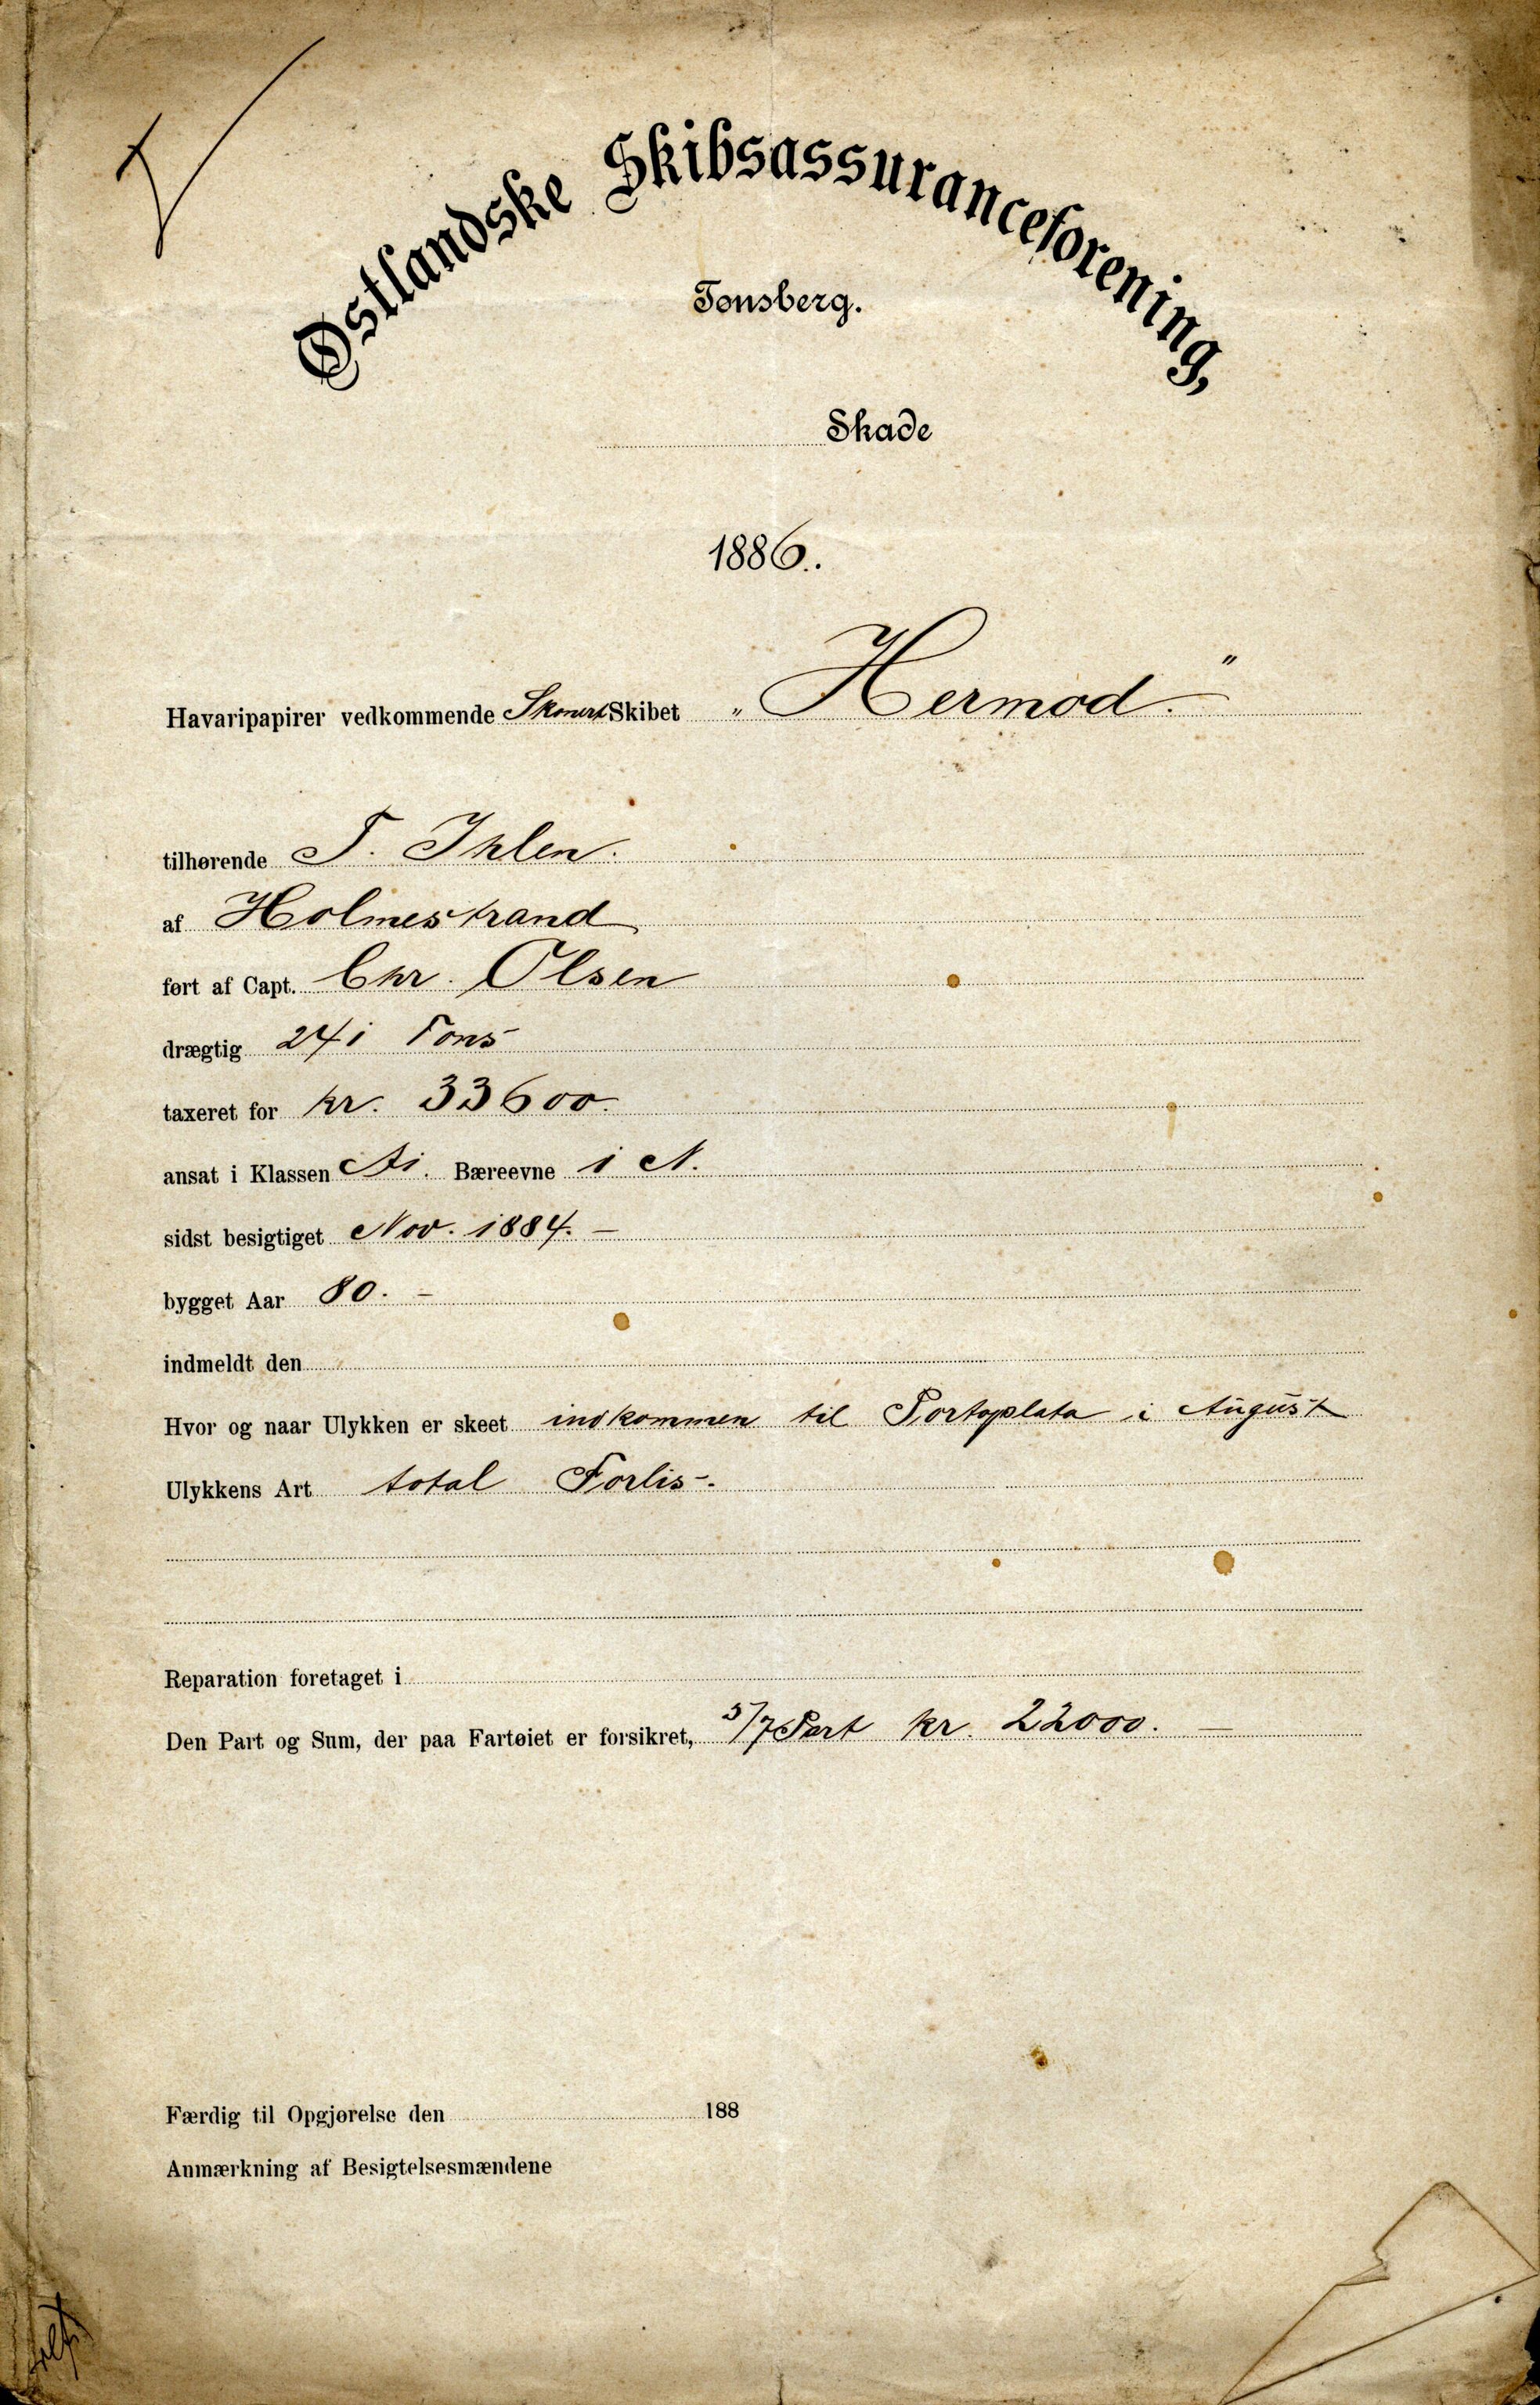 Østlandske Skibsassuranceforening,
Tønsberg.
Skade
1886.
Havaripapirer vedkommende Skonert Skibet „Hermod."
tilhørende T. Ihlen.
af Holmestrand
ført af Capt. Chr. Olsen
drægtig 241 Tons
taxeret for kr. 33600.
ansat i Klassen A1. Bæreevne 1 N.
sidst besigtiget Nov. 1884. —
bygget Aar 80. —
indmeldt den
Hvor og naar Ulykken er skeet indkommen til Portoplata i August
Ulykkens Art total Forlis.
Reparation foretaget i
Den Part og Sum, der paa Fartøiet er forsikret, 5/7 Part kr. 22000. —
Færdig til Opgjørelse den 188
Anmærkning af Besigtelsesmændene